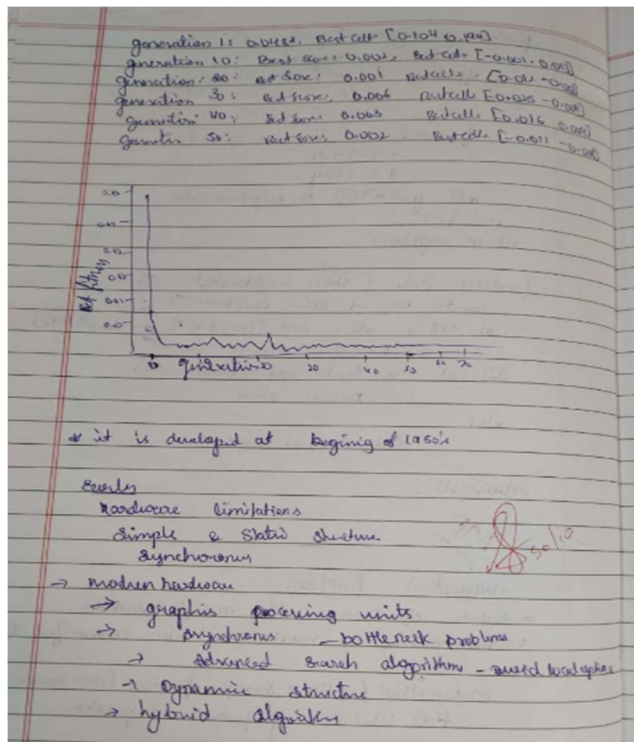 generation 1: 0.0482, Best Cell: [0.104 0.194]
generation 10: Best Score: 0.002, Best Cell: [-0.001 -0.041]
generation: 20: Best Score: 0.001 Best cell: [0.012 -0.00
generation 30: Best Score, 0.006 Best cell [0.025 -0.00
generation 40: Best Score, 0.003 Best cell, [0.016
generation 50: Best Score, 0.002 Best cell [-0.011 -0.00
Best fitness
generation
30 40 50 60 70
* it is developed at begining of 1950's
Early
hardware limitations
simple & static structure
synchoronus
→ modren hardware
→ graphis processing units
→ Asynchronus — bottleneck problems
→ Advanced search algorithm - avoid local optima
→ Dynamic structure
→ hybrid algorithm